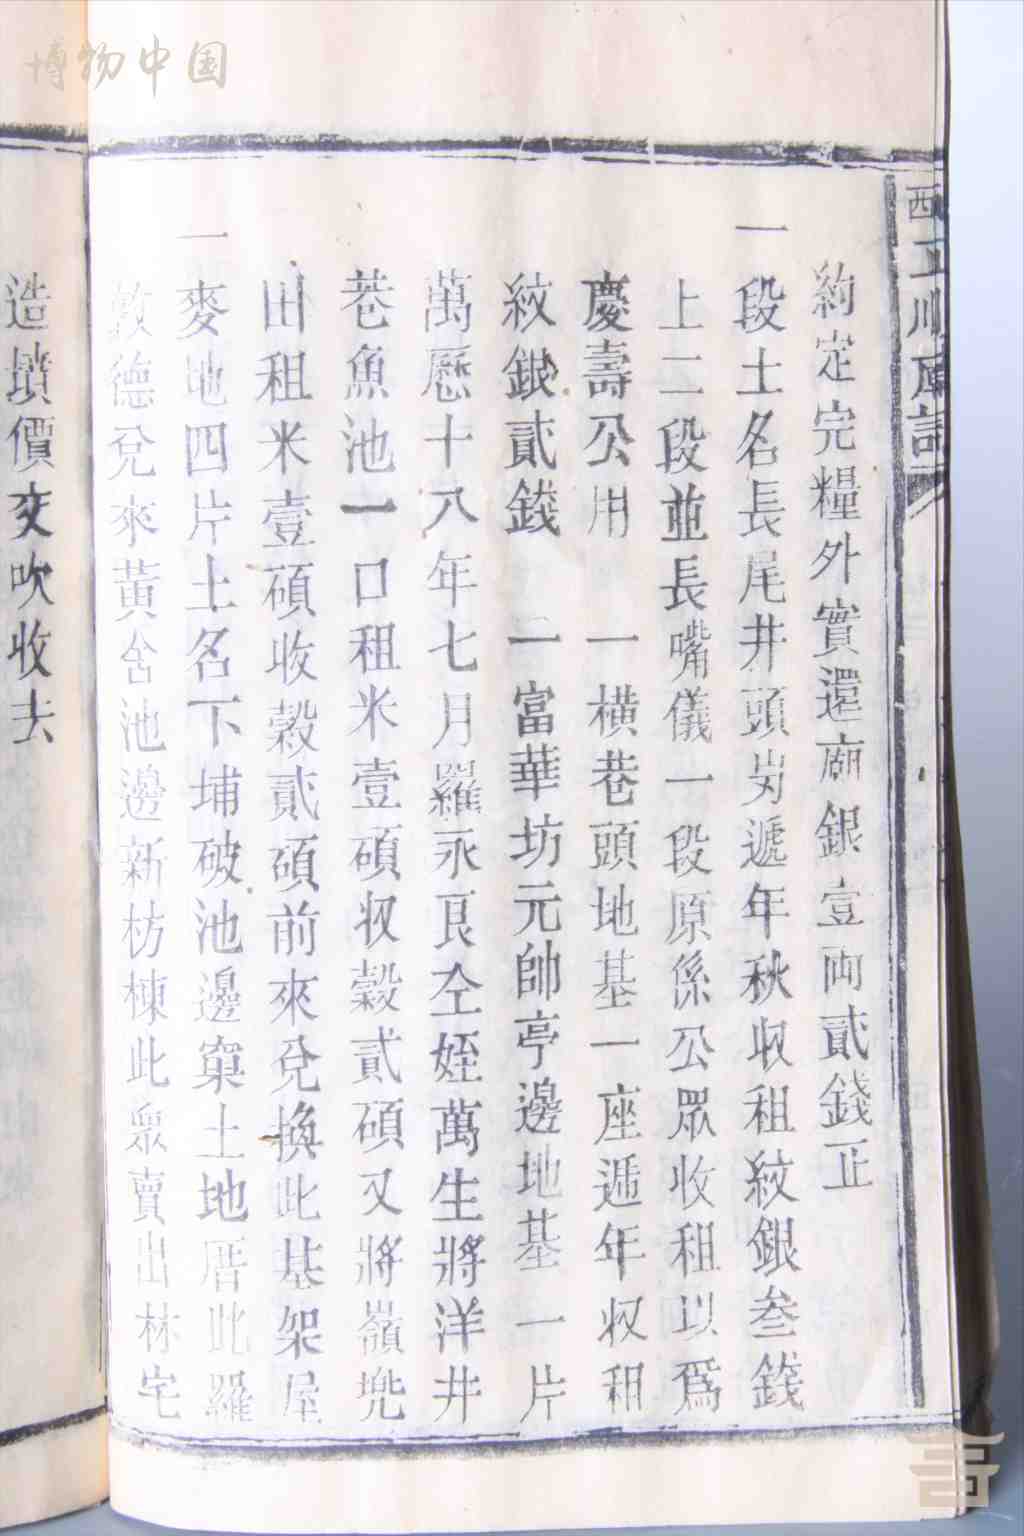 博物中国
約定完糧外實還廟銀壹両貳錢正
一段土名長尾井頭屶遞年秋収租紋銀叁錢
上二段並長嘴儀一段原係公眾收租以爲
慶壽公用 一橫巷頭地基一座遞年収租
紋銀貳錢 一富華坊元帥亭邊地基一片
萬曆十八年七月羅永艮仝姪萬生將洋井
巷魚池一口租米壹碩収穀貳碩又將嶺兠
田租米壹碩收穀貳碩前來兌換此基架屋
一麥地四片土名下埔破池邊窠土地厝此羅
敦德兌來黃舍池邊新枋棟此眾賣出林宅
造墳價交吹收去